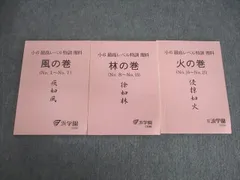 小6 最高レベル特訓 理科
風の巻
(No.1～No.7)
疾如風
浜学園
小6 最高レベル特訓 理科
林の巻
徐如林
浜学園
小6 最高レベル特訓 理科
火の巻
侵掠如火
浜学園